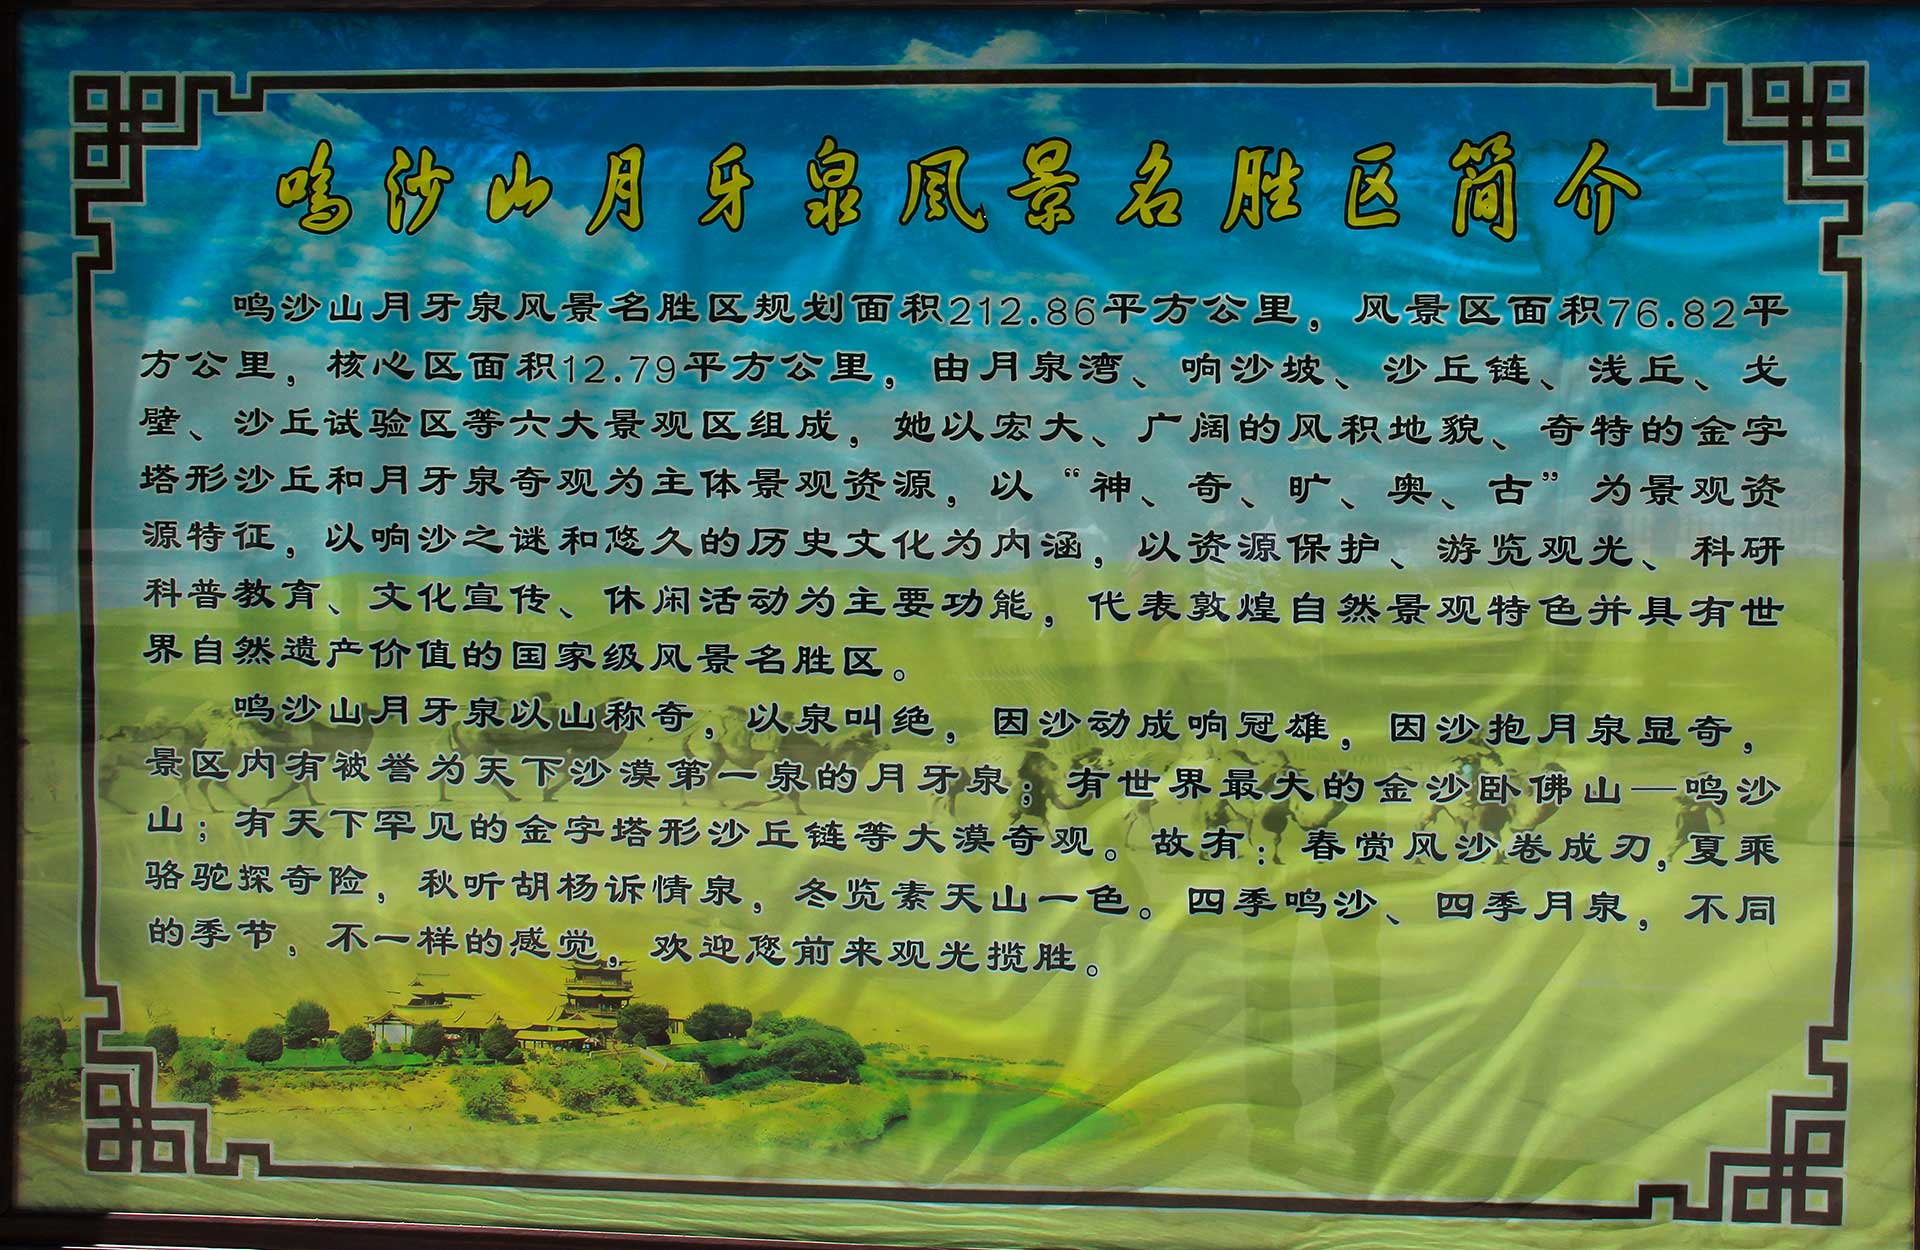 鸣沙山月牙泉风景名胜区简介
鸣沙山月牙泉风景名胜区规划面积212.86平方公里，风景区面积76.82平
方公里，核心区面积12.79平方公里，由月泉湾、响沙坡、沙丘链、浅丘、戈
壁、沙丘试验区等六大景观区组成，她以宏大、广阔的风积地貌、奇特的金字
塔形沙丘和月牙泉奇观为主体景观资源，以“神、奇、旷、奥、古”为景观资
源特征，以响沙之谜和悠久的历史文化为内涵，以资源保护、游览观光、科研
科普教育、文化宣传、休闲活动为主要功能，代表敦煌自然景观特色并具有世
界自然遗产价值的国家级风景名胜区。
鸣沙山月牙泉以山称奇，以泉叫绝，因沙动成响冠雄，因沙抱月泉显奇，
景区内有被誉为天下沙漠第一泉的月牙泉；有世界最大的金沙卧佛山—鸣沙
山；有天下罕见的金字塔形沙丘链等大漠奇观。故有：春赏风沙卷成刃，夏乘
骆驼探奇险，秋听胡杨诉情泉，冬览素天山一色。四季鸣沙、四季月泉，不同
的季节，不一样的感觉，欢迎您前来观光揽胜。